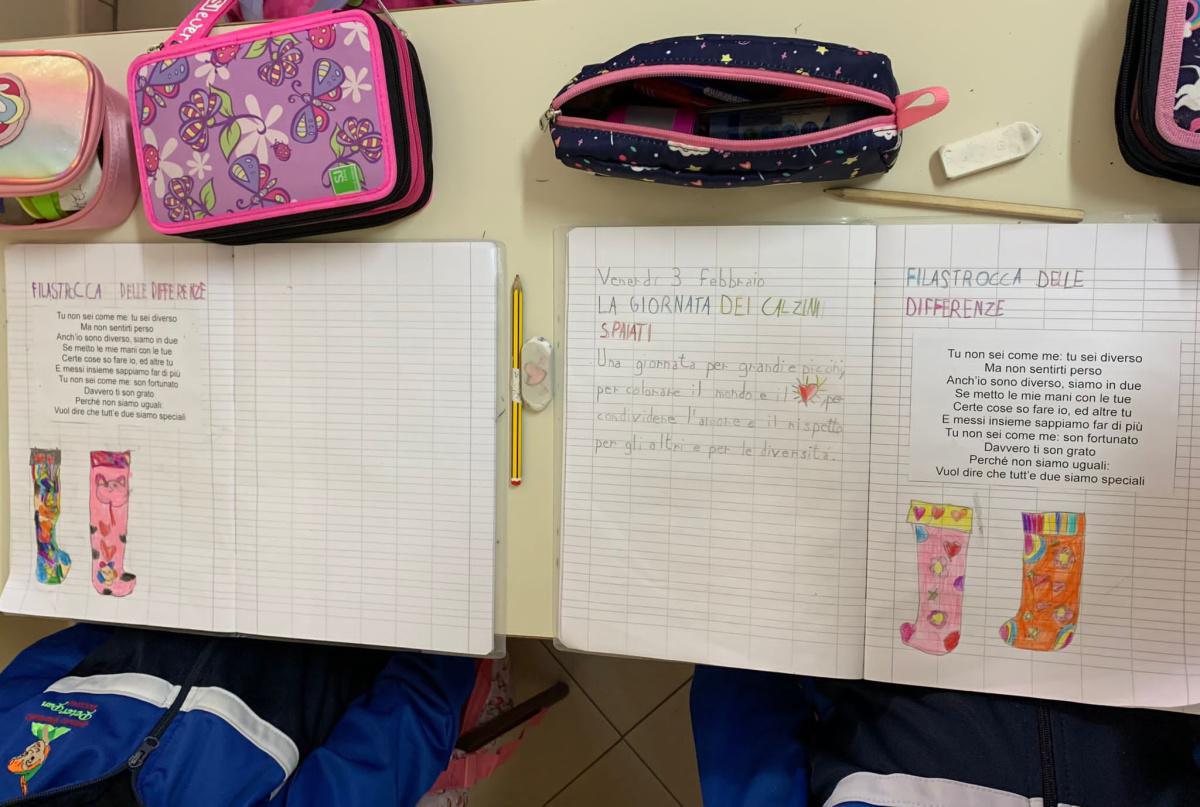 FILASTROCCA DELLE DIFFERENZE
Tu non sei come me: tu sei diverso
Ma non sentirti perso
Anch'io sono diverso, siamo in due
Se metto le mie mani con le tue
Certe cose so fare io, ed altre tu
E messi insieme sappiamo far di più
Tu non sei come me: son fortunato
Davvero ti son grato
Perché non siamo uguali:
Vuol dire che tutt'e due siamo speciali
Venerdì 3 Febbraio
LA GIORNATA DEI CALZINI
SPAIATI
Una giornata per grandi e piccoli,
per colorare il mondo e il per
condividere l'amore e il rispetto
per gli altri e per le diversità.
FILASTROCCA DELLE
DIFFERENZE
Tu non sei come me: tu sei diverso
Ma non sentirti perso
Anch'io sono diverso, siamo in due
Se metto le mie mani con le tue
Certe cose so fare io, ed altre tu
E messi insieme sappiamo far di più
Tu non sei come me: son fortunato
Davvero ti son grato
Perché non siamo uguali:
Vuol dire che tutt'e due siamo speciali